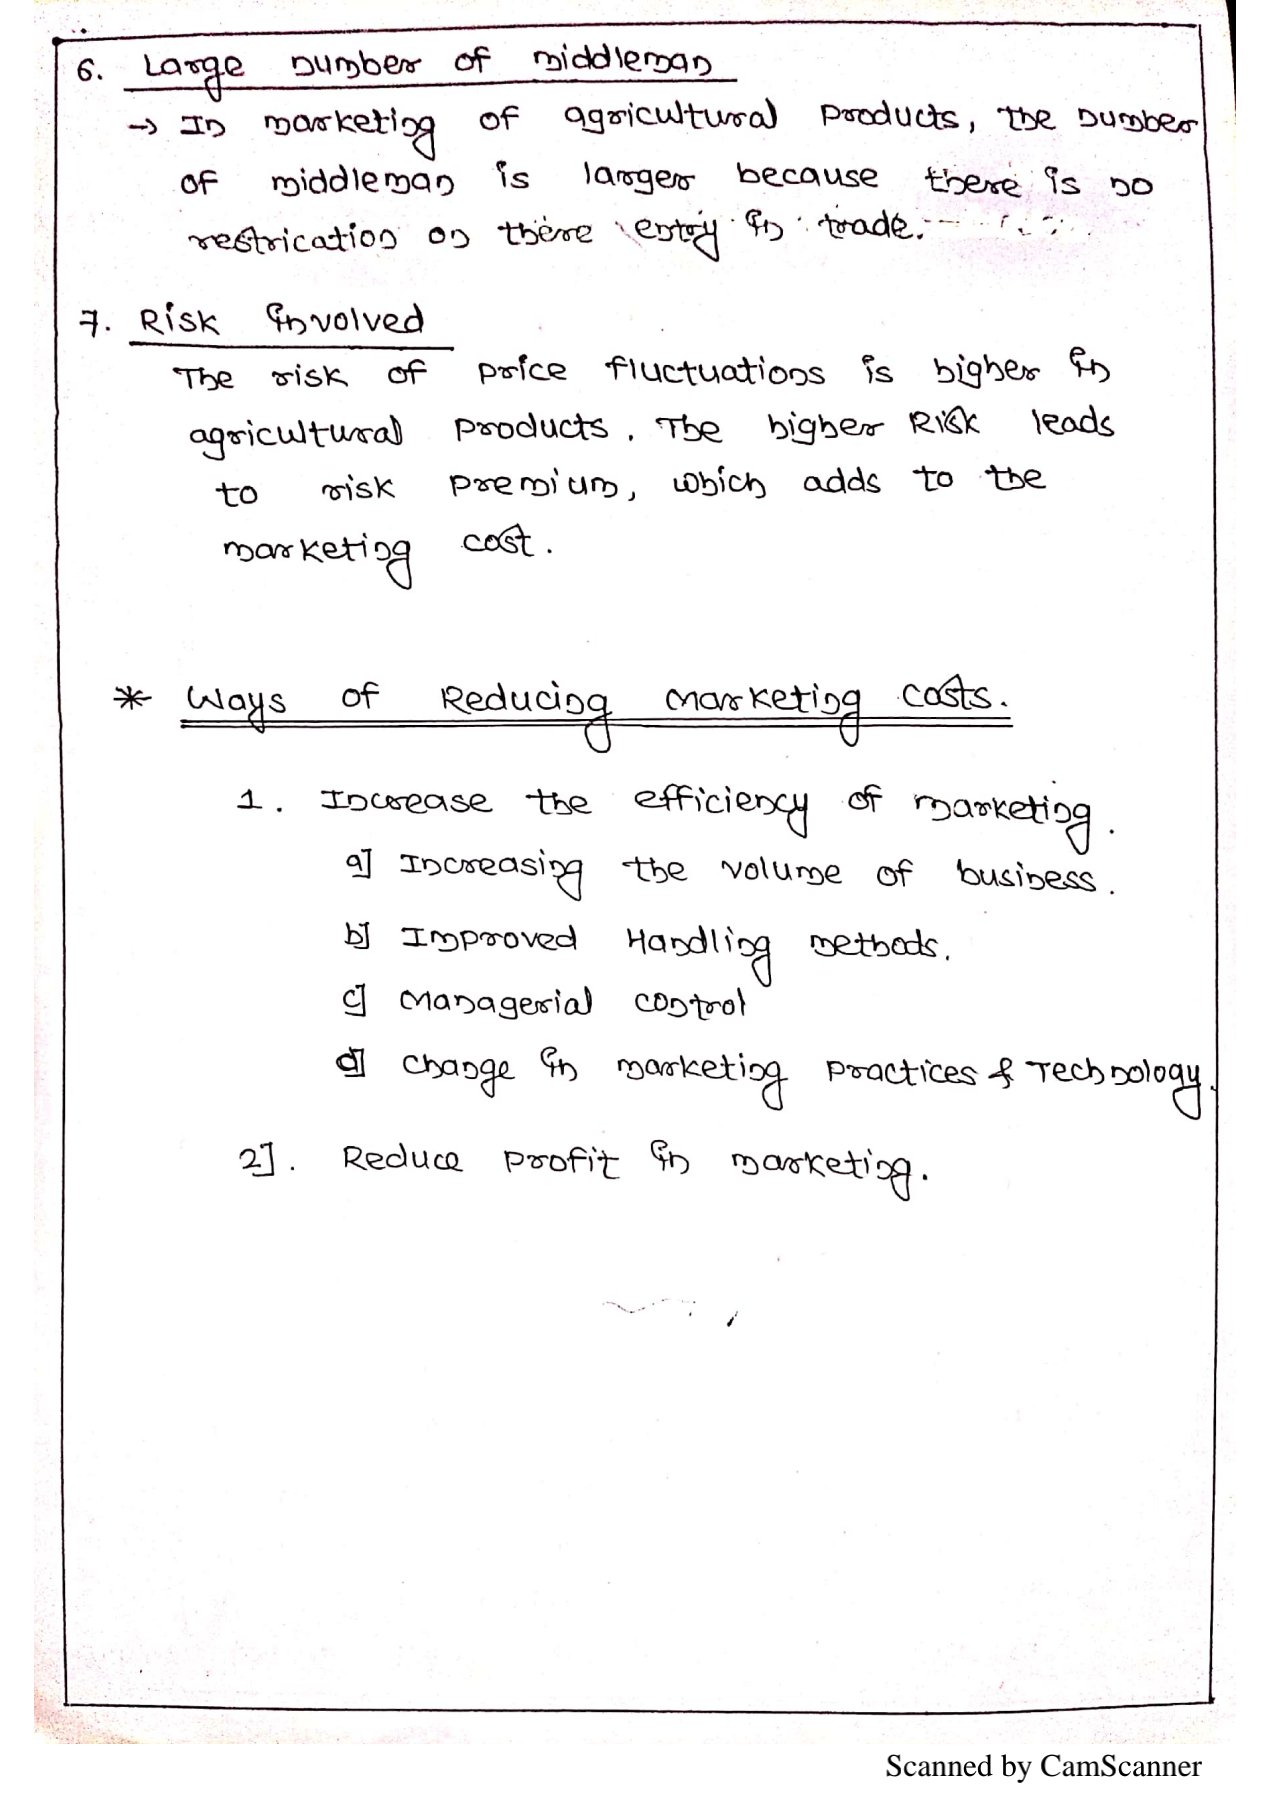 6. Large number of middleman
→ In marketing of agricultural products, the number
of middleman is larger because there is no
restrication on there entry in trade.
7. Risk involved
The risk of price fluctuations is higher in
agricultural products. The higher Risk leads
to risk premium, which adds to the
marketing cost.
* Ways of Reducing marketing costs.
1. Increase the efficiency of marketing.
a] Increasing the volume of business.
b] Improved Handling methods.
c] Managerial control
d] change in marketing practices & Technology.
2]. Reduce profit in marketing.
Scanned by CamScanner